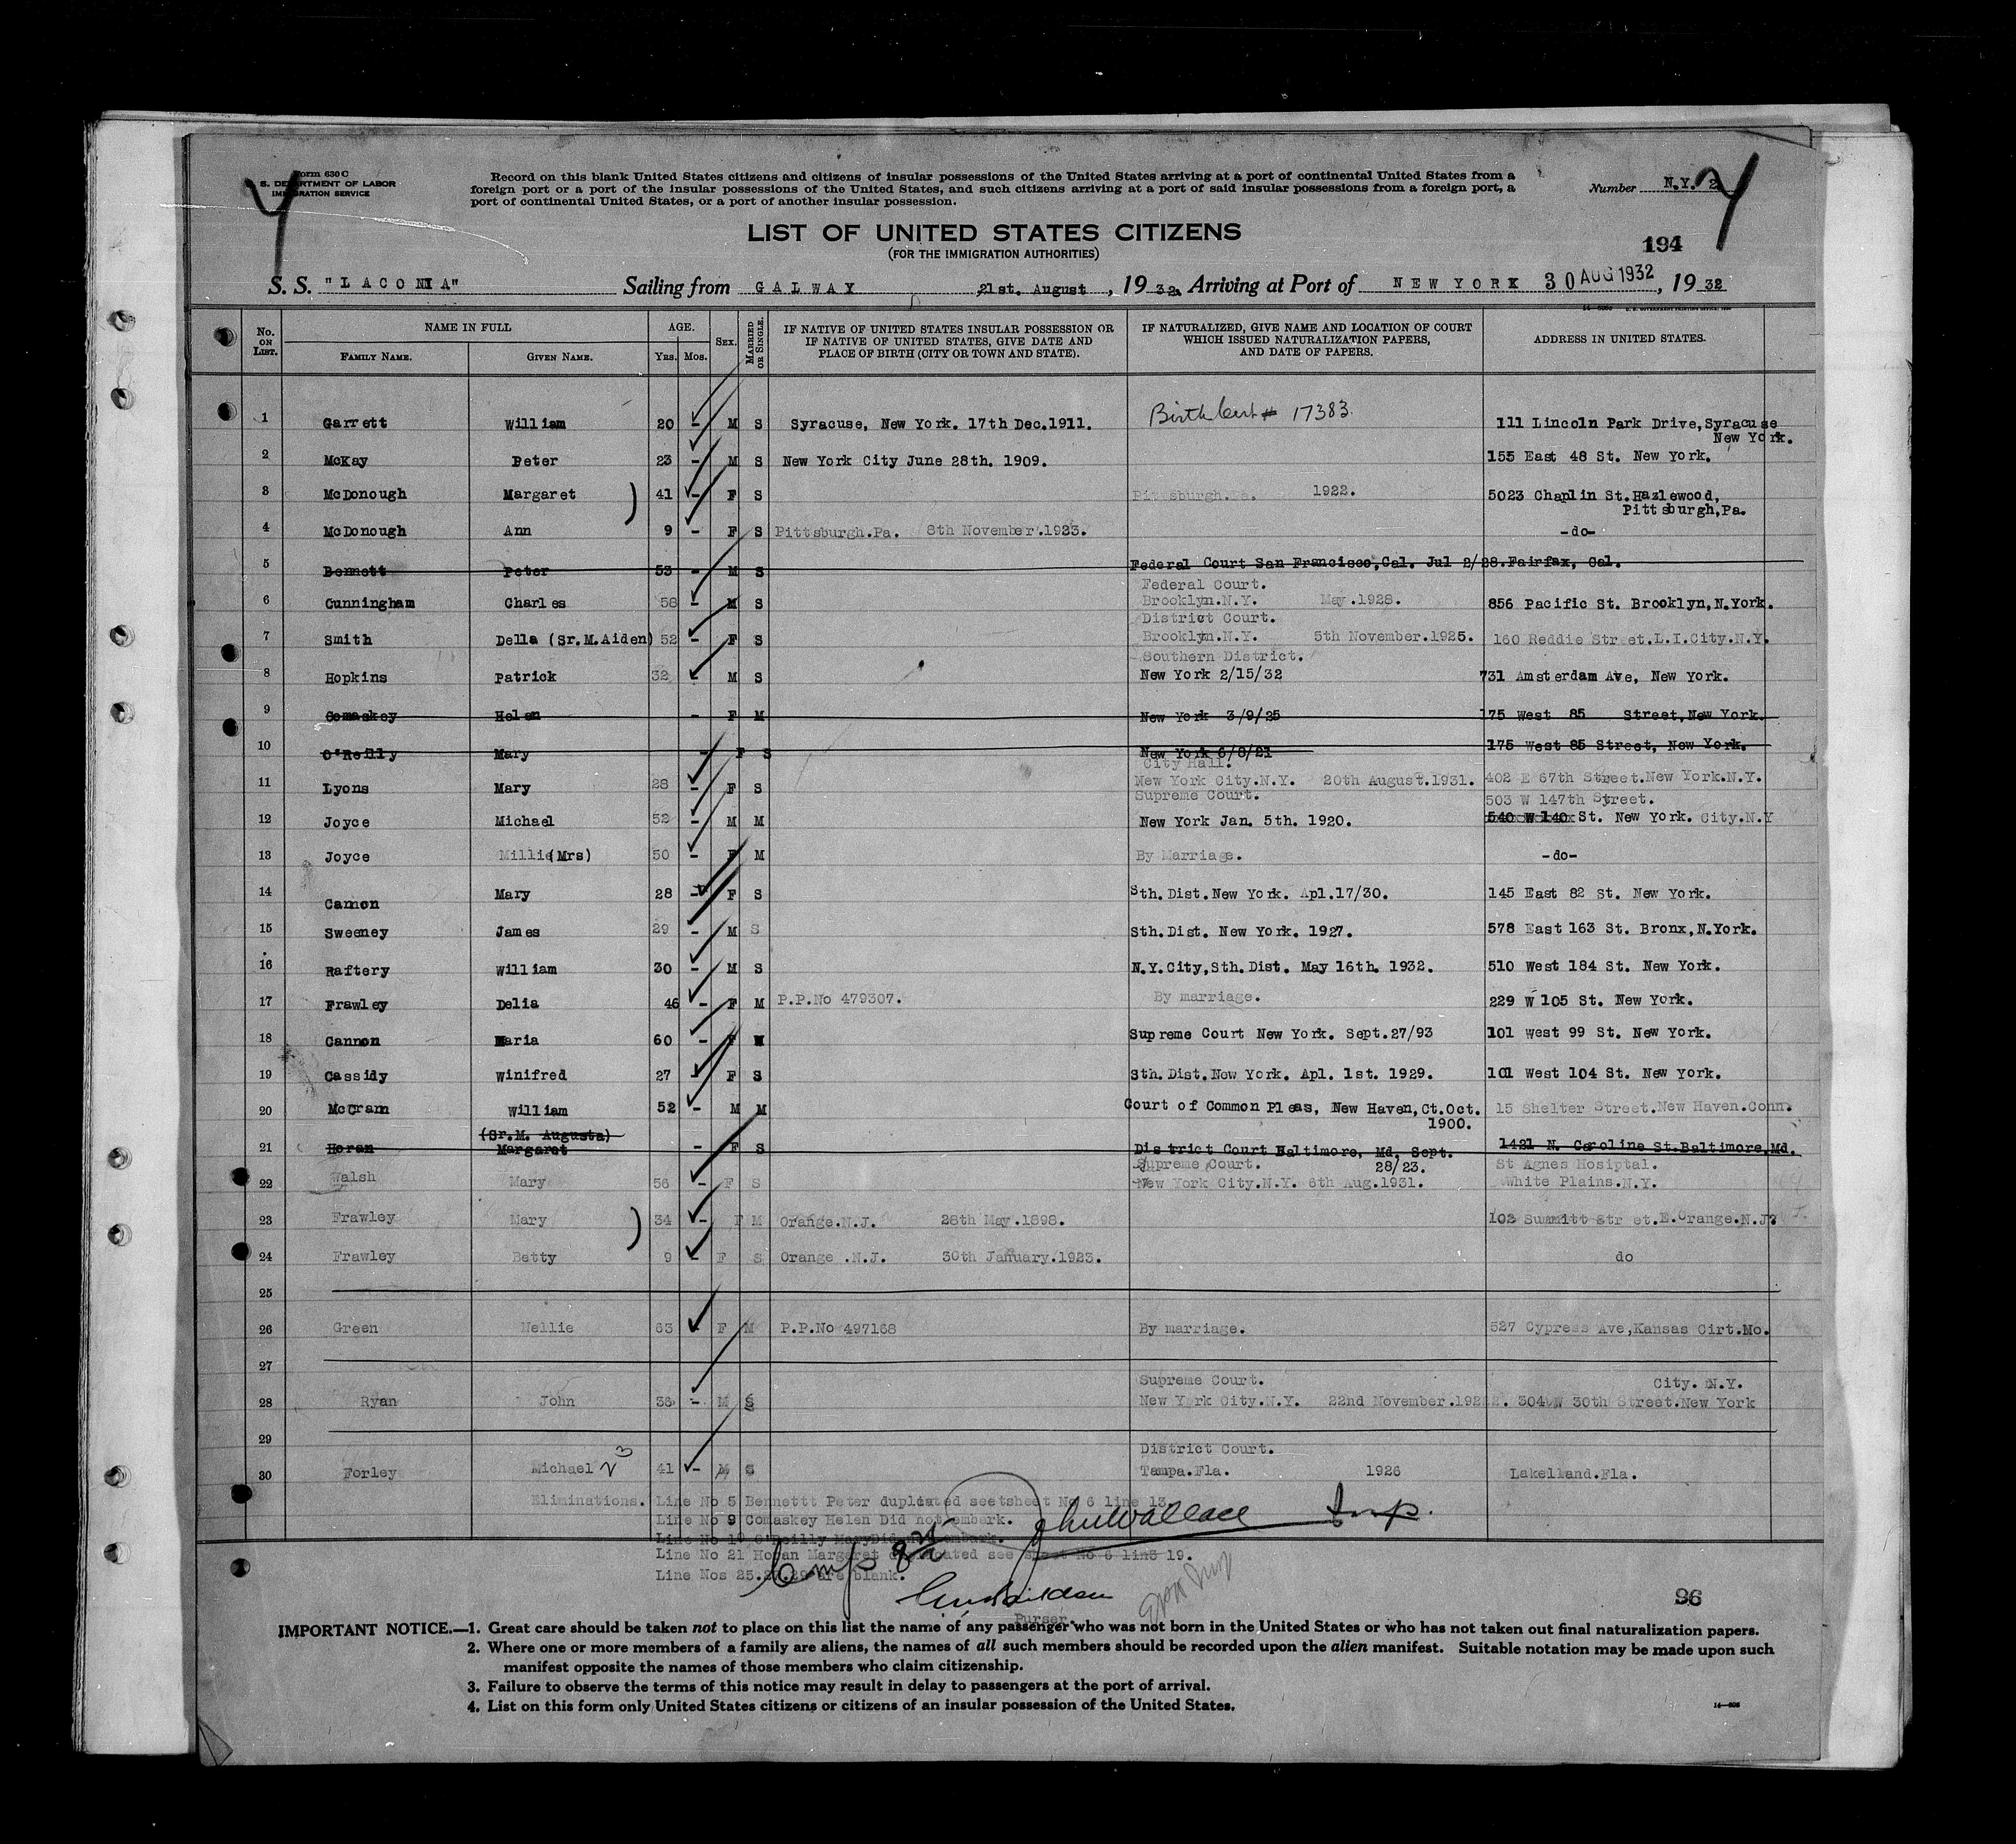 Form 630 C
U. S. DEPARTMENT OF LABOR
IMMIGRATION SERVICE
Record on this blank United States citizens and citizens of insular possessions of the United States arriving at a port of continental United States from a
foreign port or a port of the insular possessions of the United States, and such citizens arriving at a port of said insular possessions from a foreign port, a
port of continental United States, or a port of another insular possession.
Number N.Y. 2
LIST OF UNITED STATES CITIZENS
(FOR THE IMMIGRATION AUTHORITIES)
194
S. S. "LACONIA" Sailing from GALWAY 21st. August, 1932, Arriving at Port of NEW YORK 30 AUG 1932, 1932
No. ON LIST. NAME IN FULL FAMILY NAME. GIVEN NAME. AGE. YRS. MOS. SEX. MARRIED OR SINGLE. IF NATIVE OF UNITED STATES INSULAR POSSESSION OR IF NATIVE OF UNITED STATES, GIVE DATE AND PLACE OF BIRTH (CITY OR TOWN AND STATE). IF NATURALIZED, GIVE NAME AND LOCATION OF COURT WHICH ISSUED NATURALIZATION PAPERS, AND DATE OF PAPERS. ADDRESS IN UNITED STATES.
1 Garrett William 20 - M S Syracuse, New York. 17th Dec.1911. Birth Cert # 17383 111 Lincoln Park Drive,Syracuse
New York.
2 McKay Peter 23 - M S New York City June 28th. 1909. 155 East 48 St. New York.
3 McDonough Margaret ) 41 - F S Pittsburgh.Pa. 1922. 5023 Chaplin St.Hazlewood,
Pittsburgh,Pa.
4 McDonough Ann 9 - F S Pittsburgh.Pa. 8th November.1923. -do-
5 Bennett Peter 53 - M S Federal Court San Francisco,Cal. Jul 2/28.Fairfax, Cal.
Federal Court.
6 Cunningham Charles 58 - M S Brooklyn.N.Y. May.1928. 856 Pacific St. Brooklyn,N.York.
District Court.
7 Smith Della (Sr.M.Aiden) 52 - F S Brooklyn.N.Y. 5th November.1925. 160 Reddie Street.L.I.City.N.Y.
Southern District.
8 Hopkins Patrick 32 - M S New York 2/15/32 731 Amsterdam Ave, New York.
9 Comaskey Helen - F M New York 3/9/25 175 West 85 Street,New York.
10 O'Reilly Mary - F S New York 6/8/21 175 West 85 Street, New York.
City Hall.
11 Lyons Mary 28 - F S New York City.N.Y. 20th August.1931. 402 E 67th Street.New York.N.Y.
Supreme Court. 503 W 147th Street.
12 Joyce Michael 52 - M M New York Jan. 5th. 1920. 540 W 140 St. New York. City.N.Y
13 Joyce Millie (Mrs) 50 - F M By Marriage. -do-
14 Camon Mary 28 - F S Sth. Dist. New York. Apl.17/30. 145 East 82 St. New York.
15 Sweeney James 29 - M S Sth. Dist. New York. 1927. 578 East 163 St. Bronx,N.York.
16 Raftery William 30 - M S N.Y.City,Sth. Dist. May 16th. 1932. 510 West 184 St. New York.
17 Frawley Delia 46 - F M P.P.No 479307. By marriage. 229 W 105 St. New York.
18 Cannon Maria 60 - F W Supreme Court New York. Sept.27/93 101 West 99 St. New York.
19 Cassidy Winifred 27 - F S Sth. Dist.New York. Apl. 1st. 1929. 101 West 104 St. New York.
20 McCram William 52 - M M Court of Common Pleas, New Haven,Ct.Oct. 15 Shelter Street.New Haven.Conn.
1900.
(Sr.M. Augusta)
21 Horan Margaret - F S District Court Baltimore, Md, Sept. 1421 N. Caroline St.Baltimore,Md.
28/23.
Supreme Court. St Agnes Hosiptal.
22 Walsh Mary 56 - F S New York City.N.Y. 6th Aug.1931. White Plains.N.Y.
23 Frawley Mary ) 34 - F M Orange.N.J. 28th May.1898. 102 Summitt Str et.E.Orange.N.J?
24 Frawley Betty 9 - F S Orange .N.J. 30th January.1923. do
25
26 Green Nellie 63 - F M P.P.No 497168 By marriage. 527 Cypress Ave,Kansas Cirt.Mo.
27
Supreme Court. City. N.Y.
28 Ryan John 38 - M S New York City.N.Y. 22nd November.1922. 304 W 30th Street.New York
29
District Court.
30 Forley Michael 41 - M S Tampa.Fla. 1926 Lakelland.Fla.
Eliminations. Line No 5 Bennettt Peter duplicated seetsheet No 6 line 13.
Line No 9 Comaskey Helen Did not embark.
Line No 10 O'Reilly MaryDid not embark.
Line No 21 Horan Margaret duplicated see sheet No 6 line 19.
Line Nos 25.27.29 are blank.
Wallace Insp.
Purser.
96
IMPORTANT NOTICE.—1. Great care should be taken not to place on this list the name of any passenger who was not born in the United States or who has not taken out final naturalization papers.
2. Where one or more members of a family are aliens, the names of all such members should be recorded upon the alien manifest. Suitable notation may be made upon such
manifest opposite the names of those members who claim citizenship.
3. Failure to observe the terms of this notice may result in delay to passengers at the port of arrival.
4. List on this form only United States citizens or citizens of an insular possession of the United States.